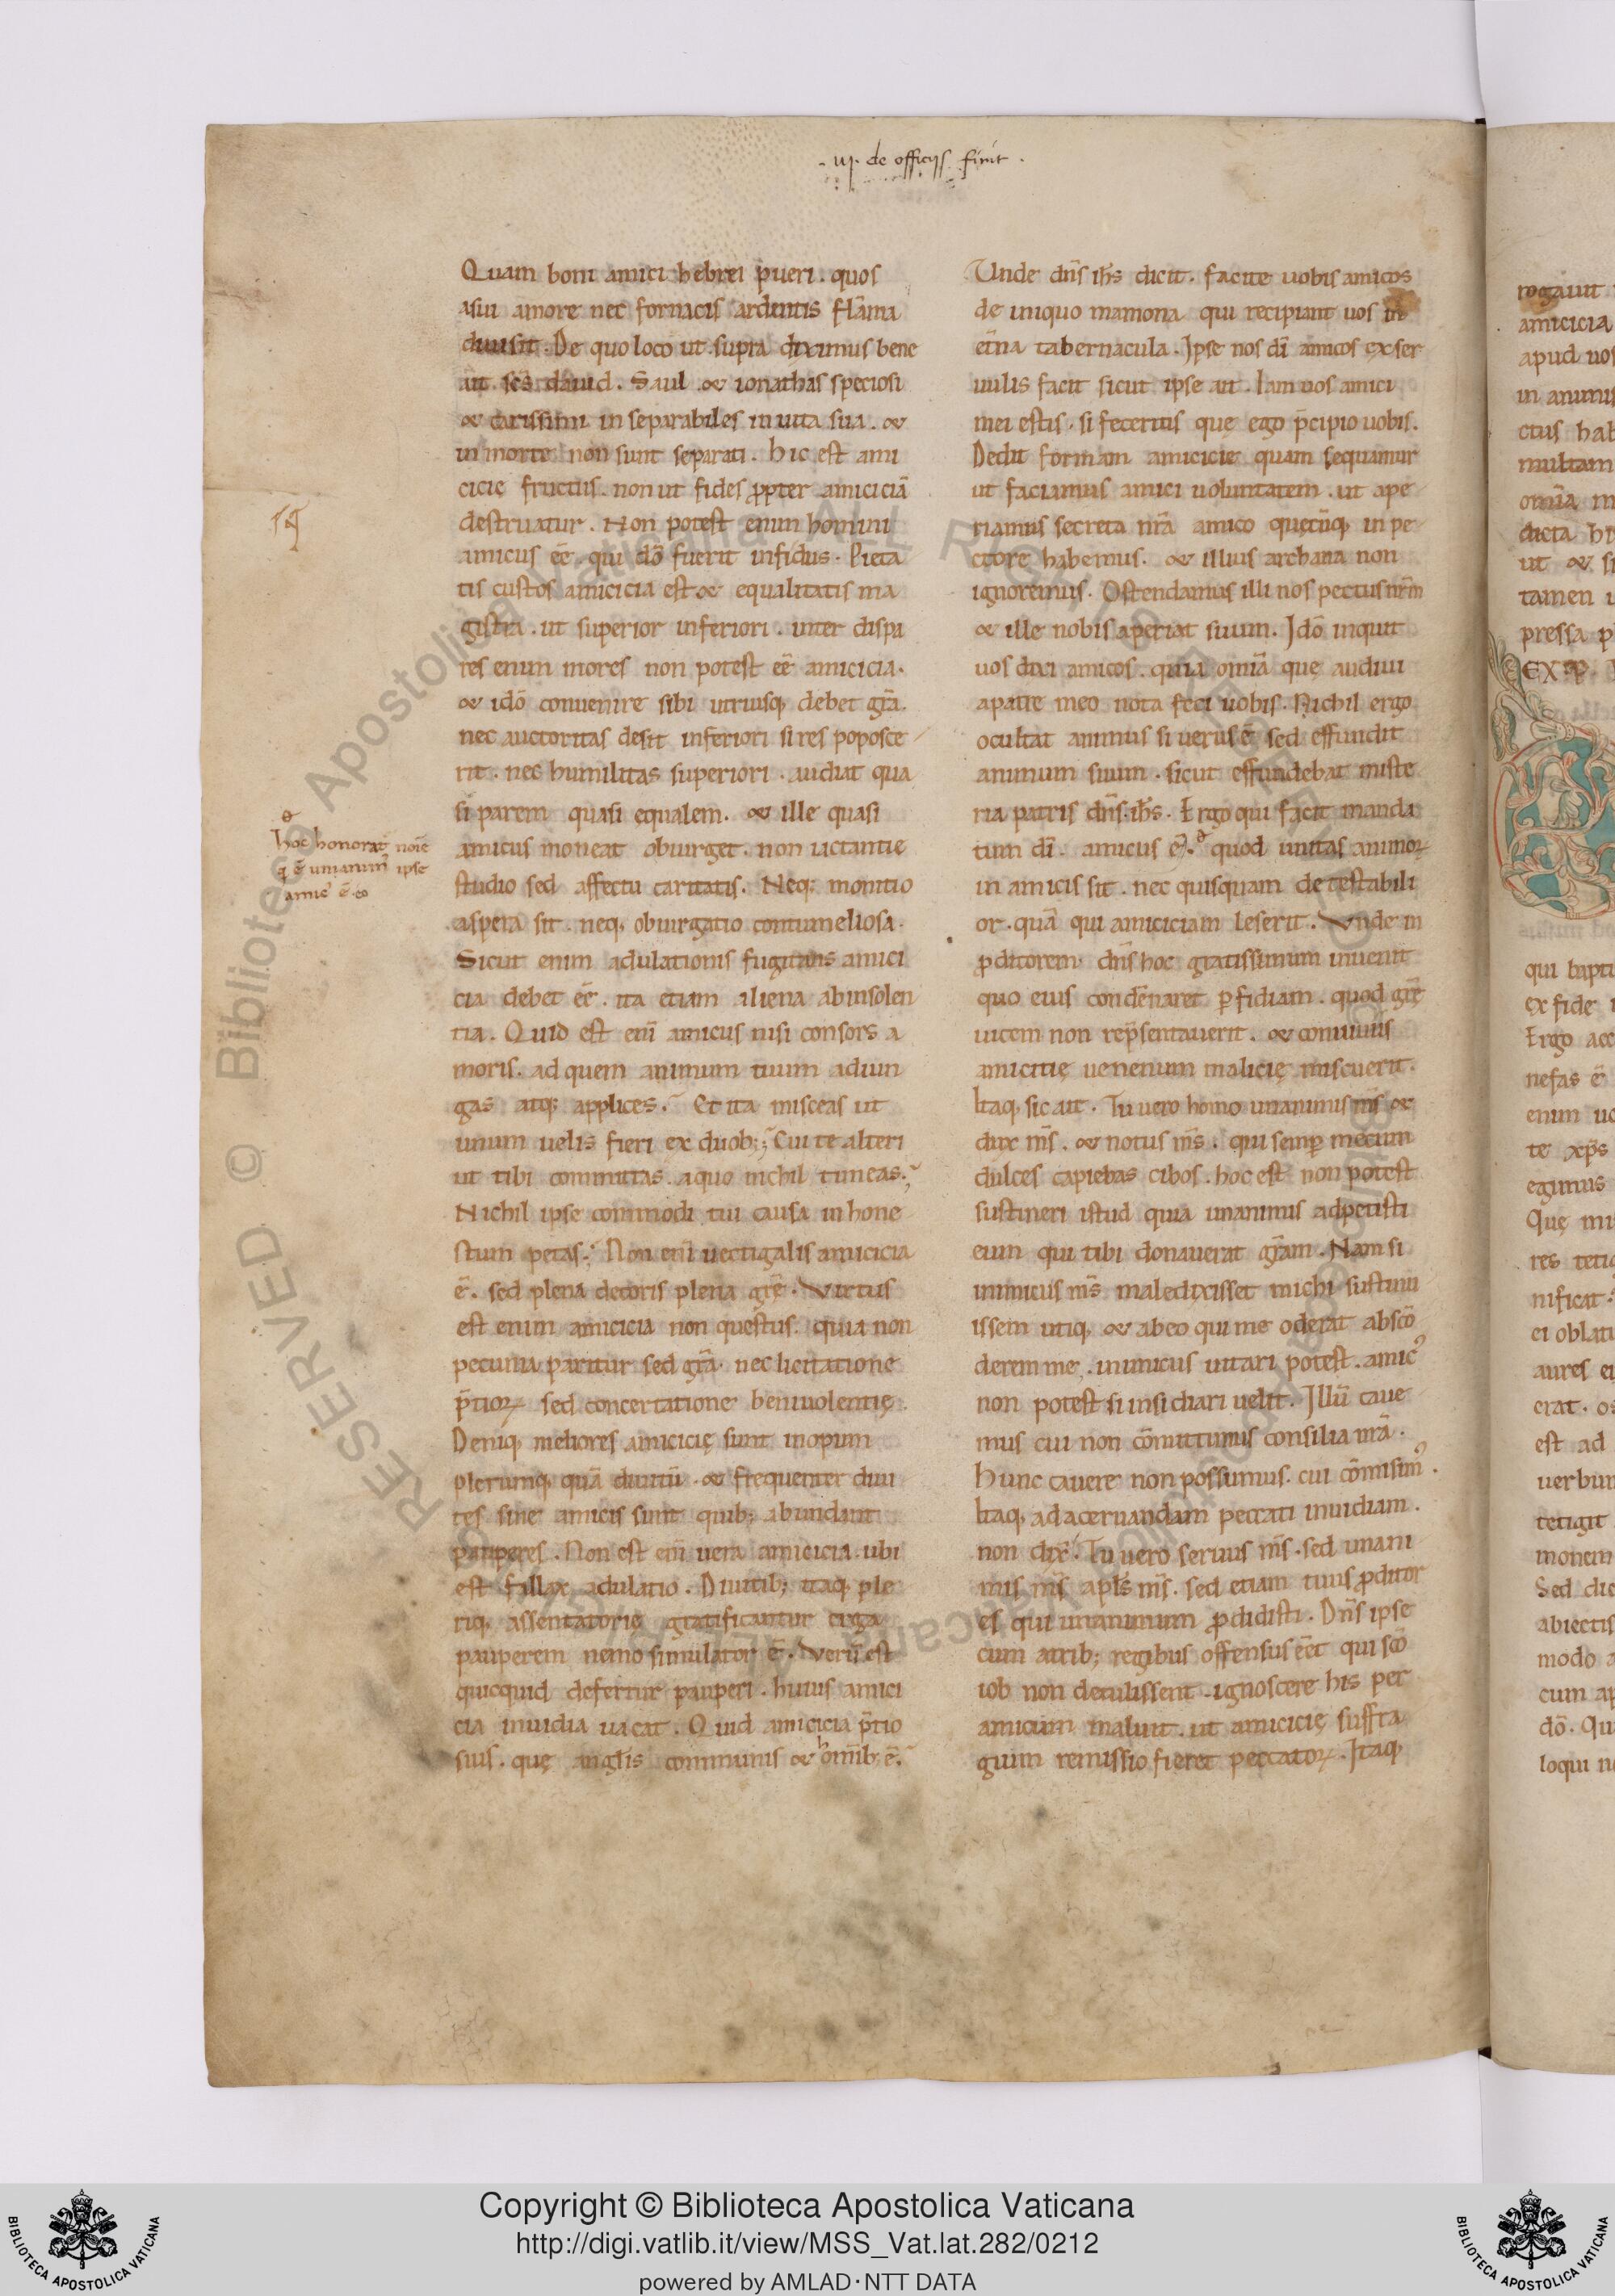 .iij. de officijs finit.
Quam boni amici hebrei pueri. quos
a sui amore nec fornacis ardentis flāma
diuisit. De quo loco ut supra diximus bene
ait scs̄ dauid. Saul & ionathas speciosi
& carissimi inseparabiles in uita sua. &
in morte non sunt separati. Hic est ami
cicię fructus. non ut fides ꝓpter amiciciā
destruatur. Non potest enim homini
amicus eē. qui dō fuerit infidus. Pieta
tis custos amicicia est & equalitatis ma
gistra. ut superior inferiori. inter dispa
res enim mores non potest eē amicicia.
& idō conuenire sibi utriusq; debet gr̄a.
nec auctoritas desit inferiori si res poposce
rit. nec humilitas superiori. audiat qua
si parem quasi equalem. & ille quasi
amicus moneat obiurget. non iactantie
studio sed affectu caritatis. Neq; monitio
aspera sit. neq; obiurgatio contumeliosa.
Sicut enim adulationis fugitans amici
cia debet eē. ita etiam aliena ab insolen
tia. Quid est eni̅ amicus nisi consors a
moris. ad quem animum tuum adiun
gas atq; applices. Et ita misceas ut
unum uelis fieri ex duob; Cui te alteri
ut tibi committas. a quo nichil timeas.
Nichil ipse commodi tui causa inhone
stum petas. Non eni̅ uectigalis amicicia
ē. sed plena decoris plena gr̄ę. Virtus
est enim amicicia non questus. quia non
pecunia paritur sed gr̄a. nec licitatione
p̄tioꝝ sed concertatione beniuolentię.
Deniq; meliores amicicię sunt inopum
plerumq; quā diuitū. & frequenter diui
tes sine amicis sunt quib; abundant
pauperes. Non est eni̅ uera amicicia ubi
est fallax adulatio. Diuitib; itaq; ple
riq; assentatorie gratificantur erga
pauperem nemo simulator ē. Verū est
quicquid defertur pauperi. huius amici
cia inuidia uacat. Quid amicicia p̄tio
sius. quę anglis communis & homīb; ē.
Hoc honorat noīe
q ē unanim' ipse
amic' ē.
Unde dn̄s ih̄s dicit. facite uobis amicos
de iniquo mamona qui recipiant uos in
et̄na tabernacula. Ipse nos dī amicos ex ser
uulis facit sicut ipse ait. Iam uos amici
mei estis. si feceritis quę ego p̄cipio uobis.
Dedit formam amicicie quam sequamur
ut faciamus amici uoluntatem. ut ape
riamus secreta nr̄a amico quęcūq; in pe
ctore habemus. & illius archana non
ignoremus. Ostendamus illi nos pectus nr̄m
& ille nobis aperiat suum. Idō inquit
uos dixi amicos. quia omīa quę audiui
a patre meo nota feci uobis. Nichil ergo
ocultat amicus si uerus ē sed effundit
animum suum. sicut effundebat miste
ria patris dn̄s ih̄s. Ergo qui facit manda
tum dī. amicus ē. quod unitas animoꝝ
in amicis sit. nec quisquam detestabili
or. quā qui amiciciam leserit. Vnde in
ꝓditorem dn̄s hoc grauissimum inuenit
quo eius condēnaret ꝑfidiam. quod gr̄ę
uicem non rep̄sentauerit. & conuiuiis
amicitię uenenum malicię miscuerit.
Itaq; sic ait. Tu uero homo unanimis ms̄ &
dux ms̄. & notus ms̄. qui semꝑ mecum
dulces capiebas cibos. hoc est non potest
sustineri istud quia unanimis adpetisti
eum qui tibi donauerat gr̄am. Nam si
inimicus ms̄ maledixisset michi sustinu
issem utiq; & ab eo qui me oderat abscō
derem me. inimicus uitari potest. amic'
non potest si insidiari uelit. Illū caue
mus cui non cōmittimus consilia nr̄a.
Hunc cauere non possumus. cui cōmisim'.
Itaq; ad aceruandam peccati inuidiam.
non dix̄. Tu uero seruus ms̄. sed unani
mis ms̄ apls̄ ms̄. sed etiam tuus ꝓditor
es qui unanimum ꝓdidisti. Dn̄s ipse
cum a trib; regibus offensus eēt qui scō
iob non detulissent. ignoscere his per
amicum maluit. ut amicicię suffra
gium remissio fieret peccatoꝝ. Itaq;
rogauit
amicicia
apud uos
in animis
ctus hab
multam
omīa m
dicta hi
ut & si
tamen
pressa p
EX
qui bapti
ex fide
Ergo acc
nefas ē
enim uo
te xp̄s
egimus
Quę mi
res tetig
nificat.
ei oblati
aures ei
erat. os
est ad
uerbum
tetigit
monem
Sed dic
abiectis
modo a
cum ap
dō. Qu
loqui n
Copyright © Biblioteca Apostolica Vaticana
http://digi.vatlib.it/view/MSS_Vat.lat.282/0212
powered by AMLAD·NTT DATA
BIBLIOTECA APOSTOLICA VATICANA
BIBLIOTECA APOSTOLICA VATICANA